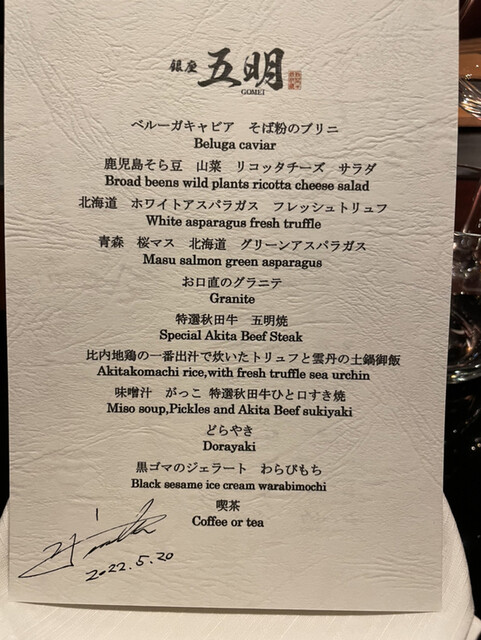 銀座 五明
GOMEI
ベルーガキャビア　そば粉のブリニ
Beluga caviar
鹿児島そら豆　山菜　リコッタチーズ　サラダ
Broad beens wild plants ricotta cheese salad
北海道　ホワイトアスパラガス　フレッシュトリュフ
White asparagus fresh truffle
青森　桜マス　北海道　グリーンアスパラガス
Masu salmon green asparagus
お口直のグラニテ
Granite
特選秋田牛　五明焼
Special Akita Beef Steak
比内地鶏の一番出汁で炊いたトリュフと雲丹の土鍋御飯
Akitakomachi rice,with fresh truffle sea urchin
味噌汁　がっこ 特選秋田牛ひと口すき焼
Miso soup,Pickles and Akita Beef sukiyaki
どらやき
Dorayaki
黒ゴマのジェラート　わらびもち
Black sesame ice cream warabimochi
喫茶
Coffee or tea
2022.5.20